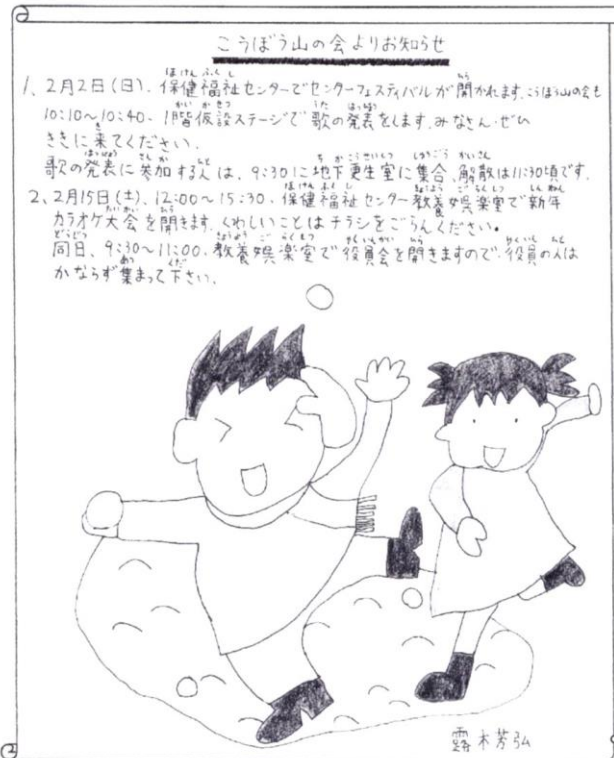 こうぼう山の会よりお知らせ
1、2月2日(日)、保健福祉センターでセンターフェスティバルが開かれます。こうぼう山の会も
10:10~10:40、1階仮設ステージで歌の発表をします。みなさん、ぜひ
ききに来てください。
歌の発表に参加する人は、9:30に地下更生室に集合、解散は11:30頃です。
2、2月15日(土)、12:00~15:30、保健福祉センター教養娯楽室で新年
カラオケ大会を開きます。くわしいことはチラシをごらんください。
同日、9:30~11:00、教養娯楽室で役員会を開きますので、役員の人は
かならず集まって下さい。
露木芳弘